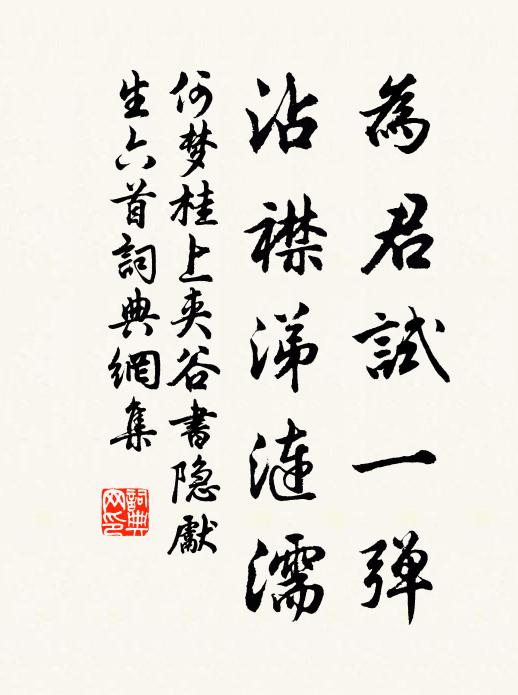 為君試一弹
沾襟涕漣濡
何梦桂上夹谷書隐獻
生六首詞典網集
詞典网印